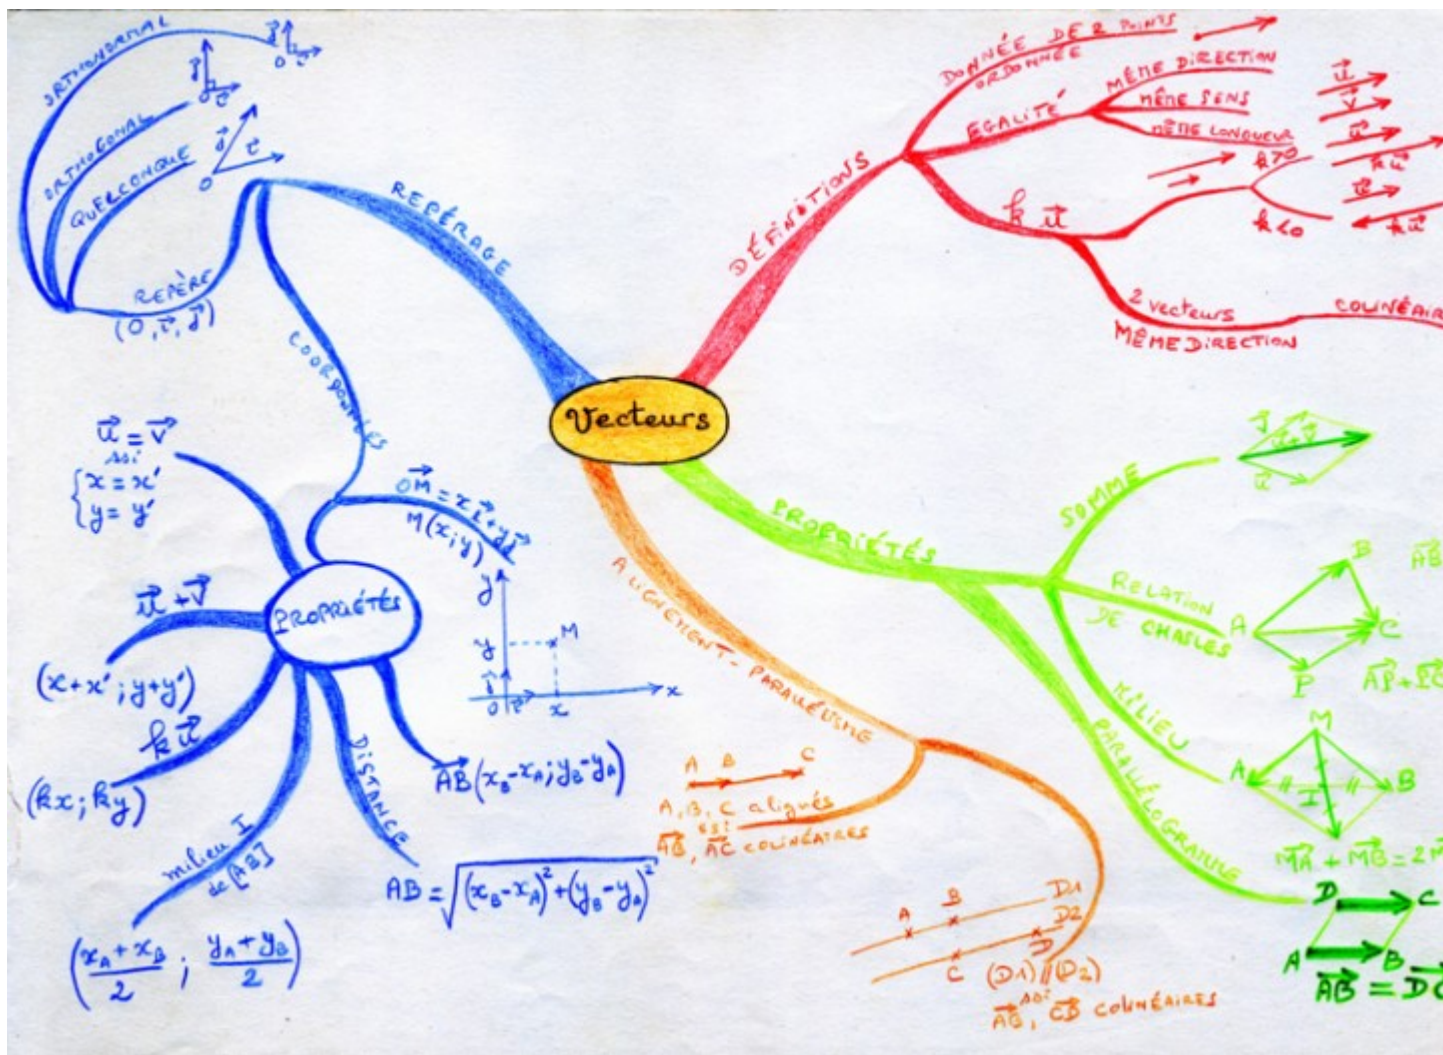 Vecteurs
REPÉRAGE
REPÈRE
(O, i⃗, j⃗)
ORTHONORMAL
j⃗
O
i⃗
ORTHOGONAL
j⃗
O
i⃗
QUELCONQUE
j⃗
i⃗
O
COORDONNÉES
OM⃗ = x i⃗ + y j⃗
M(x;y)
y
y
M
j⃗
O
i⃗
x
x
PROPRIÉTÉS
u⃗ = v⃗
ssi
{ x = x'
y = y'
u⃗ + v⃗
(x+x' ; y+y')
k u⃗
(kx ; ky)
milieu I
de [AB]
((x_A + x_B)/2 ; (y_A + y_B)/2)
DISTANCE
AB = √((x_B - x_A)² + (y_B - y_A)²)
AB⃗ (x_B - x_A ; y_B - y_A)
DÉFINITIONS
DONNÉE DE 2 POINTS
ORDONNÉE
EGALITÉ
MÊME DIRECTION
MÊME SENS
MÊME LONGUEUR
u⃗
v⃗
k u⃗
k>0
u⃗
k u⃗
k<0
u⃗
k u⃗
2 vecteurs
MÊME DIRECTION
COLINÉAIR
PROPRIÉTÉS
SOMME
v⃗
u⃗+v⃗
u⃗
RELATION
DE CHASLES
B
A
C
P
AB
AP⃗ + PC
MILIEU
M
A
I
B
MA⃗ + MB⃗ = 2M
PARALLÉLOGRAMME
D
C
A
B
AB⃗ = DC
ALIGNEMENT - PARALLÉLISME
A B C
A, B, C alignés
ssi
AB⃗, AC⃗ COLINÉAIRES
A
B
D1
D2
C
D
(D1) // (D2)
ssi
AB⃗, CD⃗ COLINÉAIRES